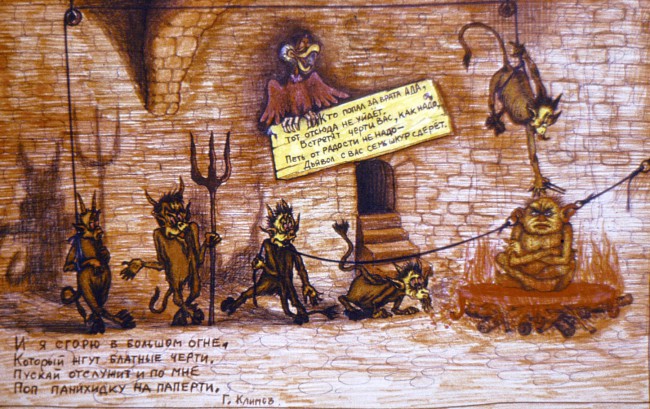 Кто попал за врата ада,
тот отсюда не уйдёт.
Встретят черти вас, как надо,
Петь от радости не надо—
Дьявол с вас семь шкур сдерёт.
И я сгорю в большом огне,
Который жгут блатные черти.
Пускай отслужит и по мне
Поп панихидку на паперти.
Г. Климов